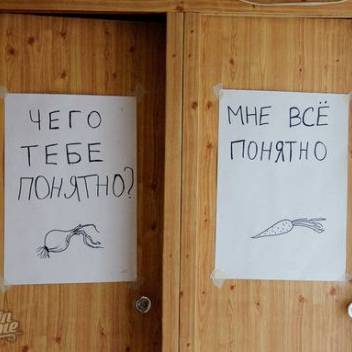 ЧЕГО
ТЕБЕ
ПОНЯТНО?
МНЕ ВСЁ
ПОНЯТНО